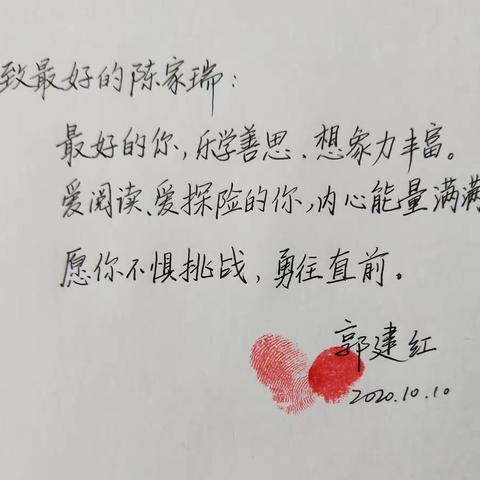 致最好的陈家瑞：
最好的你，乐学善思、想象力丰富。
爱阅读、爱探险的你，内心能量满满
愿你不惧挑战，勇往直前。
郭建红
2020.10.10